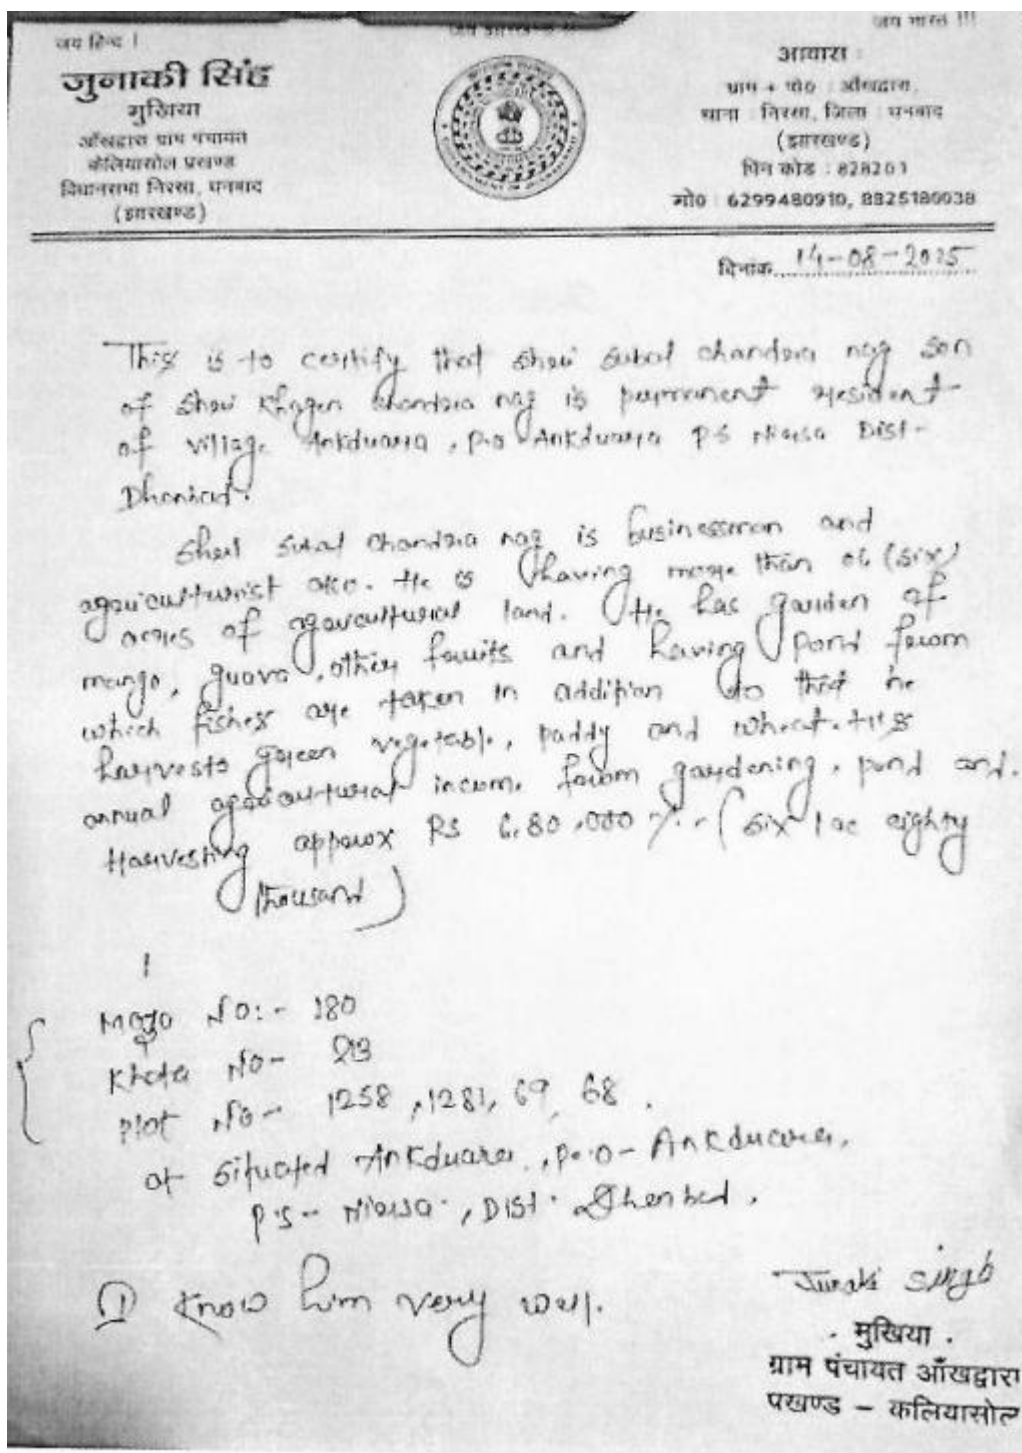 जय हिन्द !
जय भारत !!!
जुनाकी सिंह
मुखिया
आँखद्वारा ग्राम पंचायत
केलियासोल प्रखण्ड
विधानसभा निरसा, धनबाद
(झारखण्ड)
आवास :
ग्राम + पो० : आँखद्वारा,
थाना : निरसा, जिला : धनबाद
(झारखण्ड)
पिन कोड : 828201
मो० : 6299480910, 8825180038
दिनांक 14-08-2025
This is to certify that Shri Subal Chandra nag son
of Shri Khagen Chandra nag is permanent resident
of village Ankduara, P.o Ankduara P.S Nirsa Dist-
Dhanbad.
Shri Subal Chandra nag is businessman and
agriculturist also. He is having more than 06 (six)
acres of agricultural land. He has garden of
mango, guava, other fruits and having pond from
which fishes are taken in addition to that he
harvests green vegetable, paddy and wheat. His
annual agricultural income from gardening, pond and
Harvesting approx RS 6,80,000/- (six lac eighty
thousand)
Moja No:- 180
Khata No- 213
Plot No- 1258, 1281, 69, 68.
at situated Ankduara, P.O- Ankduara,
P.S- Nirsa, Dist- Dhanbad.
I know him very well.
Junaki Singh
मुखिया
ग्राम पंचायत आँखद्वारा
पखण्ड - कलियासोल